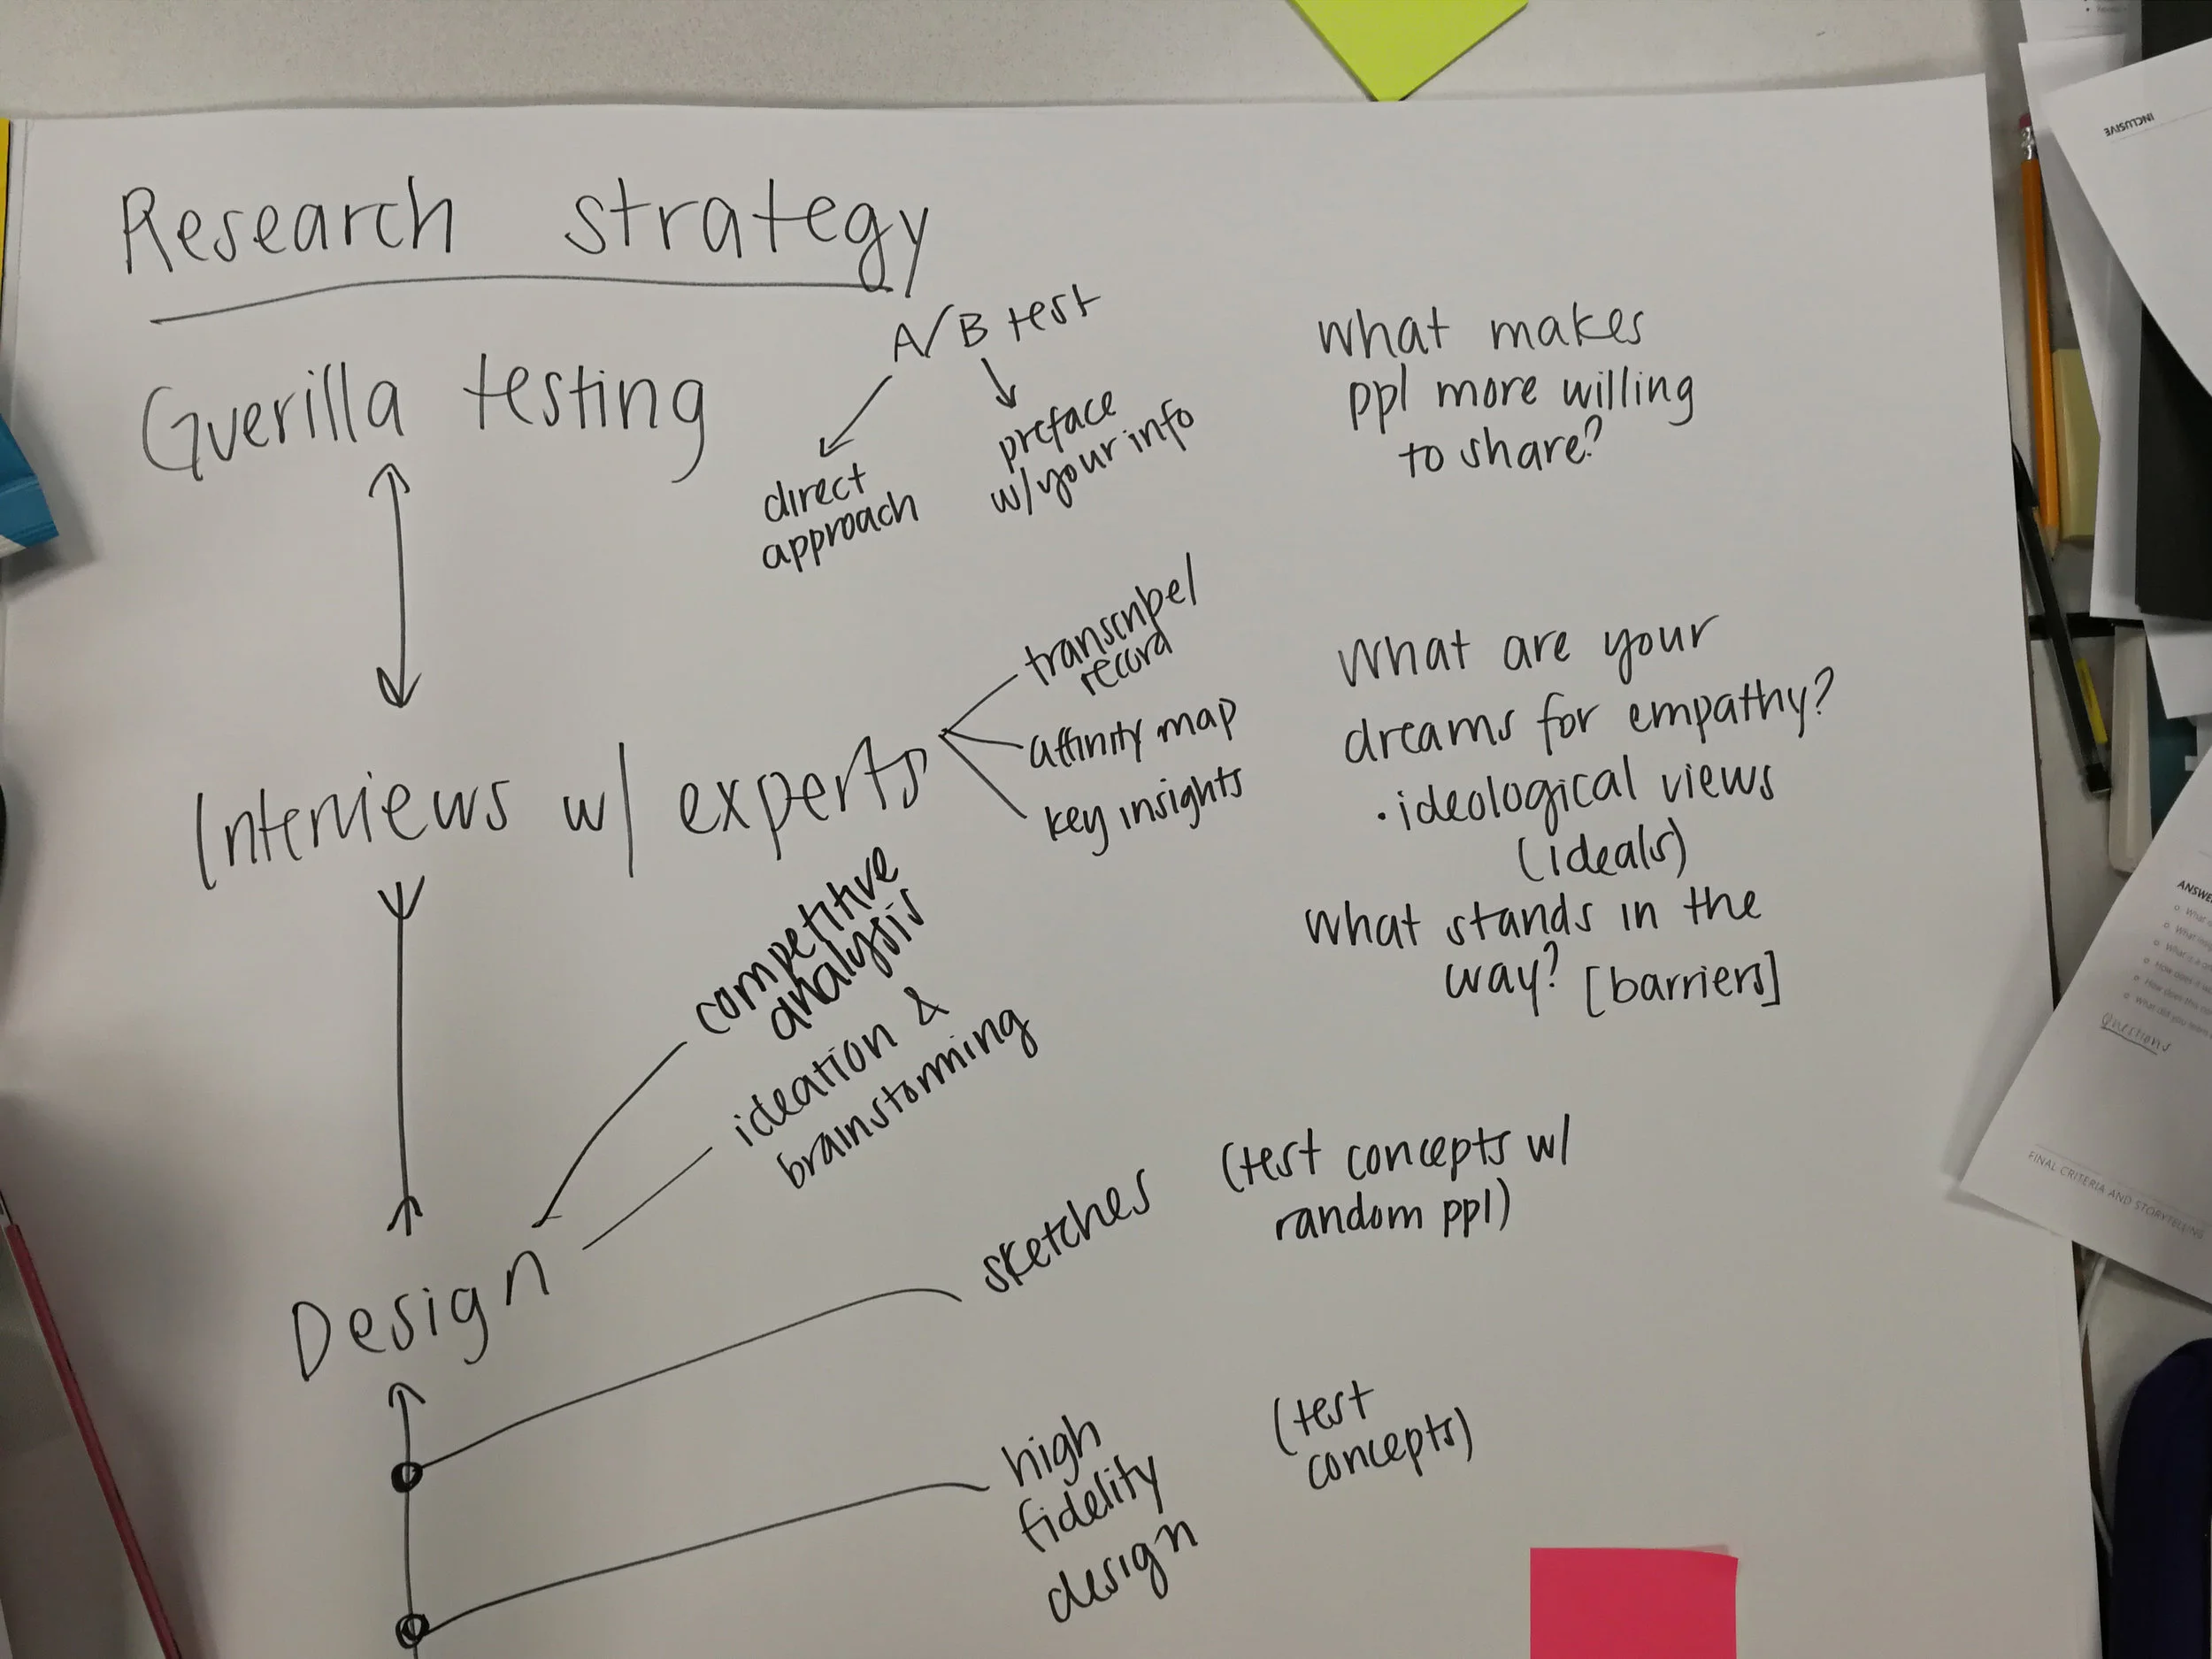 Research strategy
Guerilla testing
A/B test
direct
approach
preface
w/your info
what makes
ppl more willing
to share?
Interviews w/ experts
transcribe/
record
affinity map
key insights
What are your
dreams for empathy?
• ideological views
(ideals)
what stands in the
way? [barriers]
competitive
analysis
ideation &
brainstorming
Design
sketches
(test concepts w/
random ppl)
high
fidelity
design
(test
concepts)
INCLUSIVE
Questions
FINAL CRITERIA AND STORYTELLING